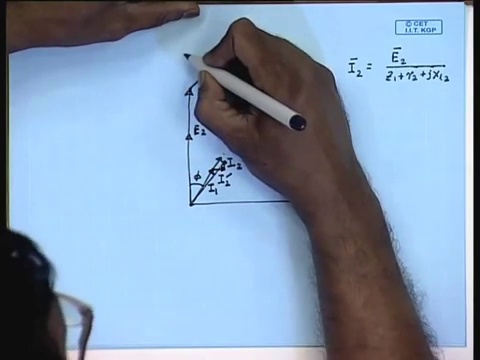 © CET
I.I.T. KGP
Ī₂ = Ē₂ / z₁ + r₂ + jx₁₂
E₂
I₂
φ
I₂'
I₁